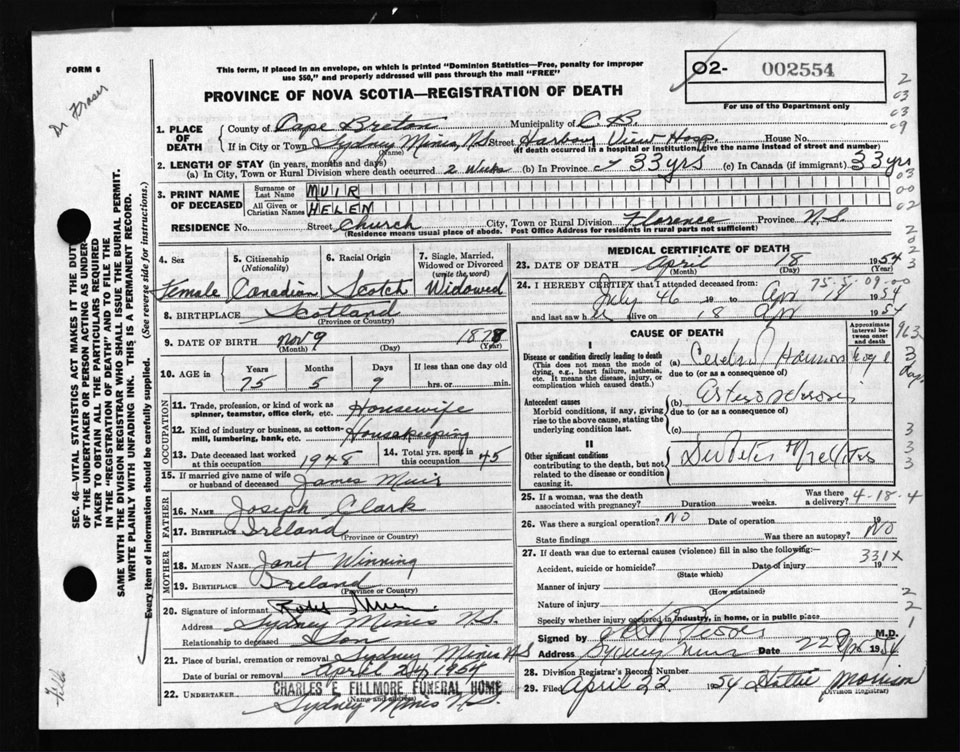 FORM 6
Dr Fraser
This form, if placed in an envelope, on which is printed "Dominion Statistics—Free, penalty for improper
use $50," and properly addressed will pass through the mail "FREE"
PROVINCE OF NOVA SCOTIA—REGISTRATION OF DEATH
02- 002554
For use of the Department only
2
03
03
09
1. PLACE OF DEATH
County of Cape Breton Municipality of C.B.
If in City or Town Sydney Mines, N.S. Street Harbour View Hosp. House No.
(Name) (If death occurred in a hospital or institution, give the name instead of street and number)
2. LENGTH OF STAY (in years, months and days)
(a) In City, Town or Rural Division where death occurred 2 Weeks (b) In Province 33 yrs (c) In Canada (if immigrant) 33 yrs
03
00
02
3. PRINT NAME OF DECEASED
Surname or Last Name MUIR
All Given or Christian Names HELEN
RESIDENCE No. Street Church City, Town or Rural Division Florence Province N.S.
(Residence means usual place of abode. Post Office Address for residents in rural parts not sufficient)
SEC. 46—VITAL STATISTICS ACT MAKES IT THE DUTY
OF THE UNDERTAKER OR PERSON ACTING AS UNDER-
TAKER TO OBTAIN ALL THE PARTICULARS REQUIRED
IN THE "REGISTRATION OF DEATH" AND TO FILE THE
SAME WITH THE DIVISION REGISTRAR WHO SHALL ISSUE THE BURIAL PERMIT.
WRITE PLAINLY WITH UNFADING INK. THIS IS A PERMANENT RECORD.
Every item of information should be carefully supplied. (See reverse side for instructions.)
4. Sex
Female
5. Citizenship
(Nationality)
Canadian
6. Racial Origin
Scotch
7. Single, Married,
Widowed or Divorced
(write the word)
Widowed
8. BIRTHPLACE Scotland
(Province or Country)
9. DATE OF BIRTH Nov 9 1878
(Month) (Day) (Year)
10. AGE in Years Months Days If less than one day old
75 5 9 hrs. or min.
OCCUPATION
11. Trade, profession, or kind of work as
spinner, teamster, office clerk, etc. Housewife
12. Kind of industry or business, as cotton-
mill, lumbering, bank, etc. Housekeeping
13. Date deceased last worked
at this occupation 1948
14. Total yrs. spent in
this occupation 45
15. If married give name of wife
or husband of deceased James Muir
FATHER
16. Name Joseph Clark
17. Birthplace Ireland
(Province or Country)
MOTHER
18. MAIDEN NAME Janet Winning
19. BIRTHPLACE Ireland
(Province or Country)
20. Signature of informant Muir
Address Sydney Mines N.S.
Relationship to deceased Son
21. Place of burial, cremation or removal Sydney Mines NS
Date of burial or removal April 21, 1954
22. UNDERTAKER CHARLES E. FILLMORE FUNERAL HOME
(Name and address)
Sydney Mines N.S.
MEDICAL CERTIFICATE OF DEATH
23. DATE OF DEATH April 18 1954
(Month) (Day) (Year)
24. I HEREBY CERTIFY that I attended deceased from: 75-11-09-00
July 46 19 to Apr 18 1954
and last saw her alive on 18 Apr 1954
CAUSE OF DEATH
Approximate
interval be-
tween onset
and death
I
Disease or condition directly leading to death
(This does not mean the mode of
dying, e.g., heart failure, asthenia,
etc. It means the disease, injury, or
complication which caused death.)
(a) Cerebral
due to (or as a consequence of)
3 days
Antecedent causes
Morbid conditions, if any, giving
rise to the above cause, stating the
underlying condition last.
(b) Arteriosclerosis
due to (or as a consequence of)
(c)
II
Other significant conditions
contributing to the death, but not
related to the disease or condition
causing it.
25. If a woman, was the death
associated with pregnancy? Duration weeks. Was there a delivery? 4-18-4
26. Was there a surgical operation? No Date of operation 19
State findings Was there an autopsy? No
27. If death was due to external causes (violence) fill in also the following:—
331X
Accident, suicide or homicide? Date of injury 19
(State which)
Manner of injury
(How sustained)
Nature of injury
Specify whether injury occurred in industry, in home, or in public place
Signed by M.D.
Address Sydney Mines Date 22 Apr 1954
28. Division Registrar's Record Number
29. Filed April 22 1954 Hattie Morrison
(Division Registrar)